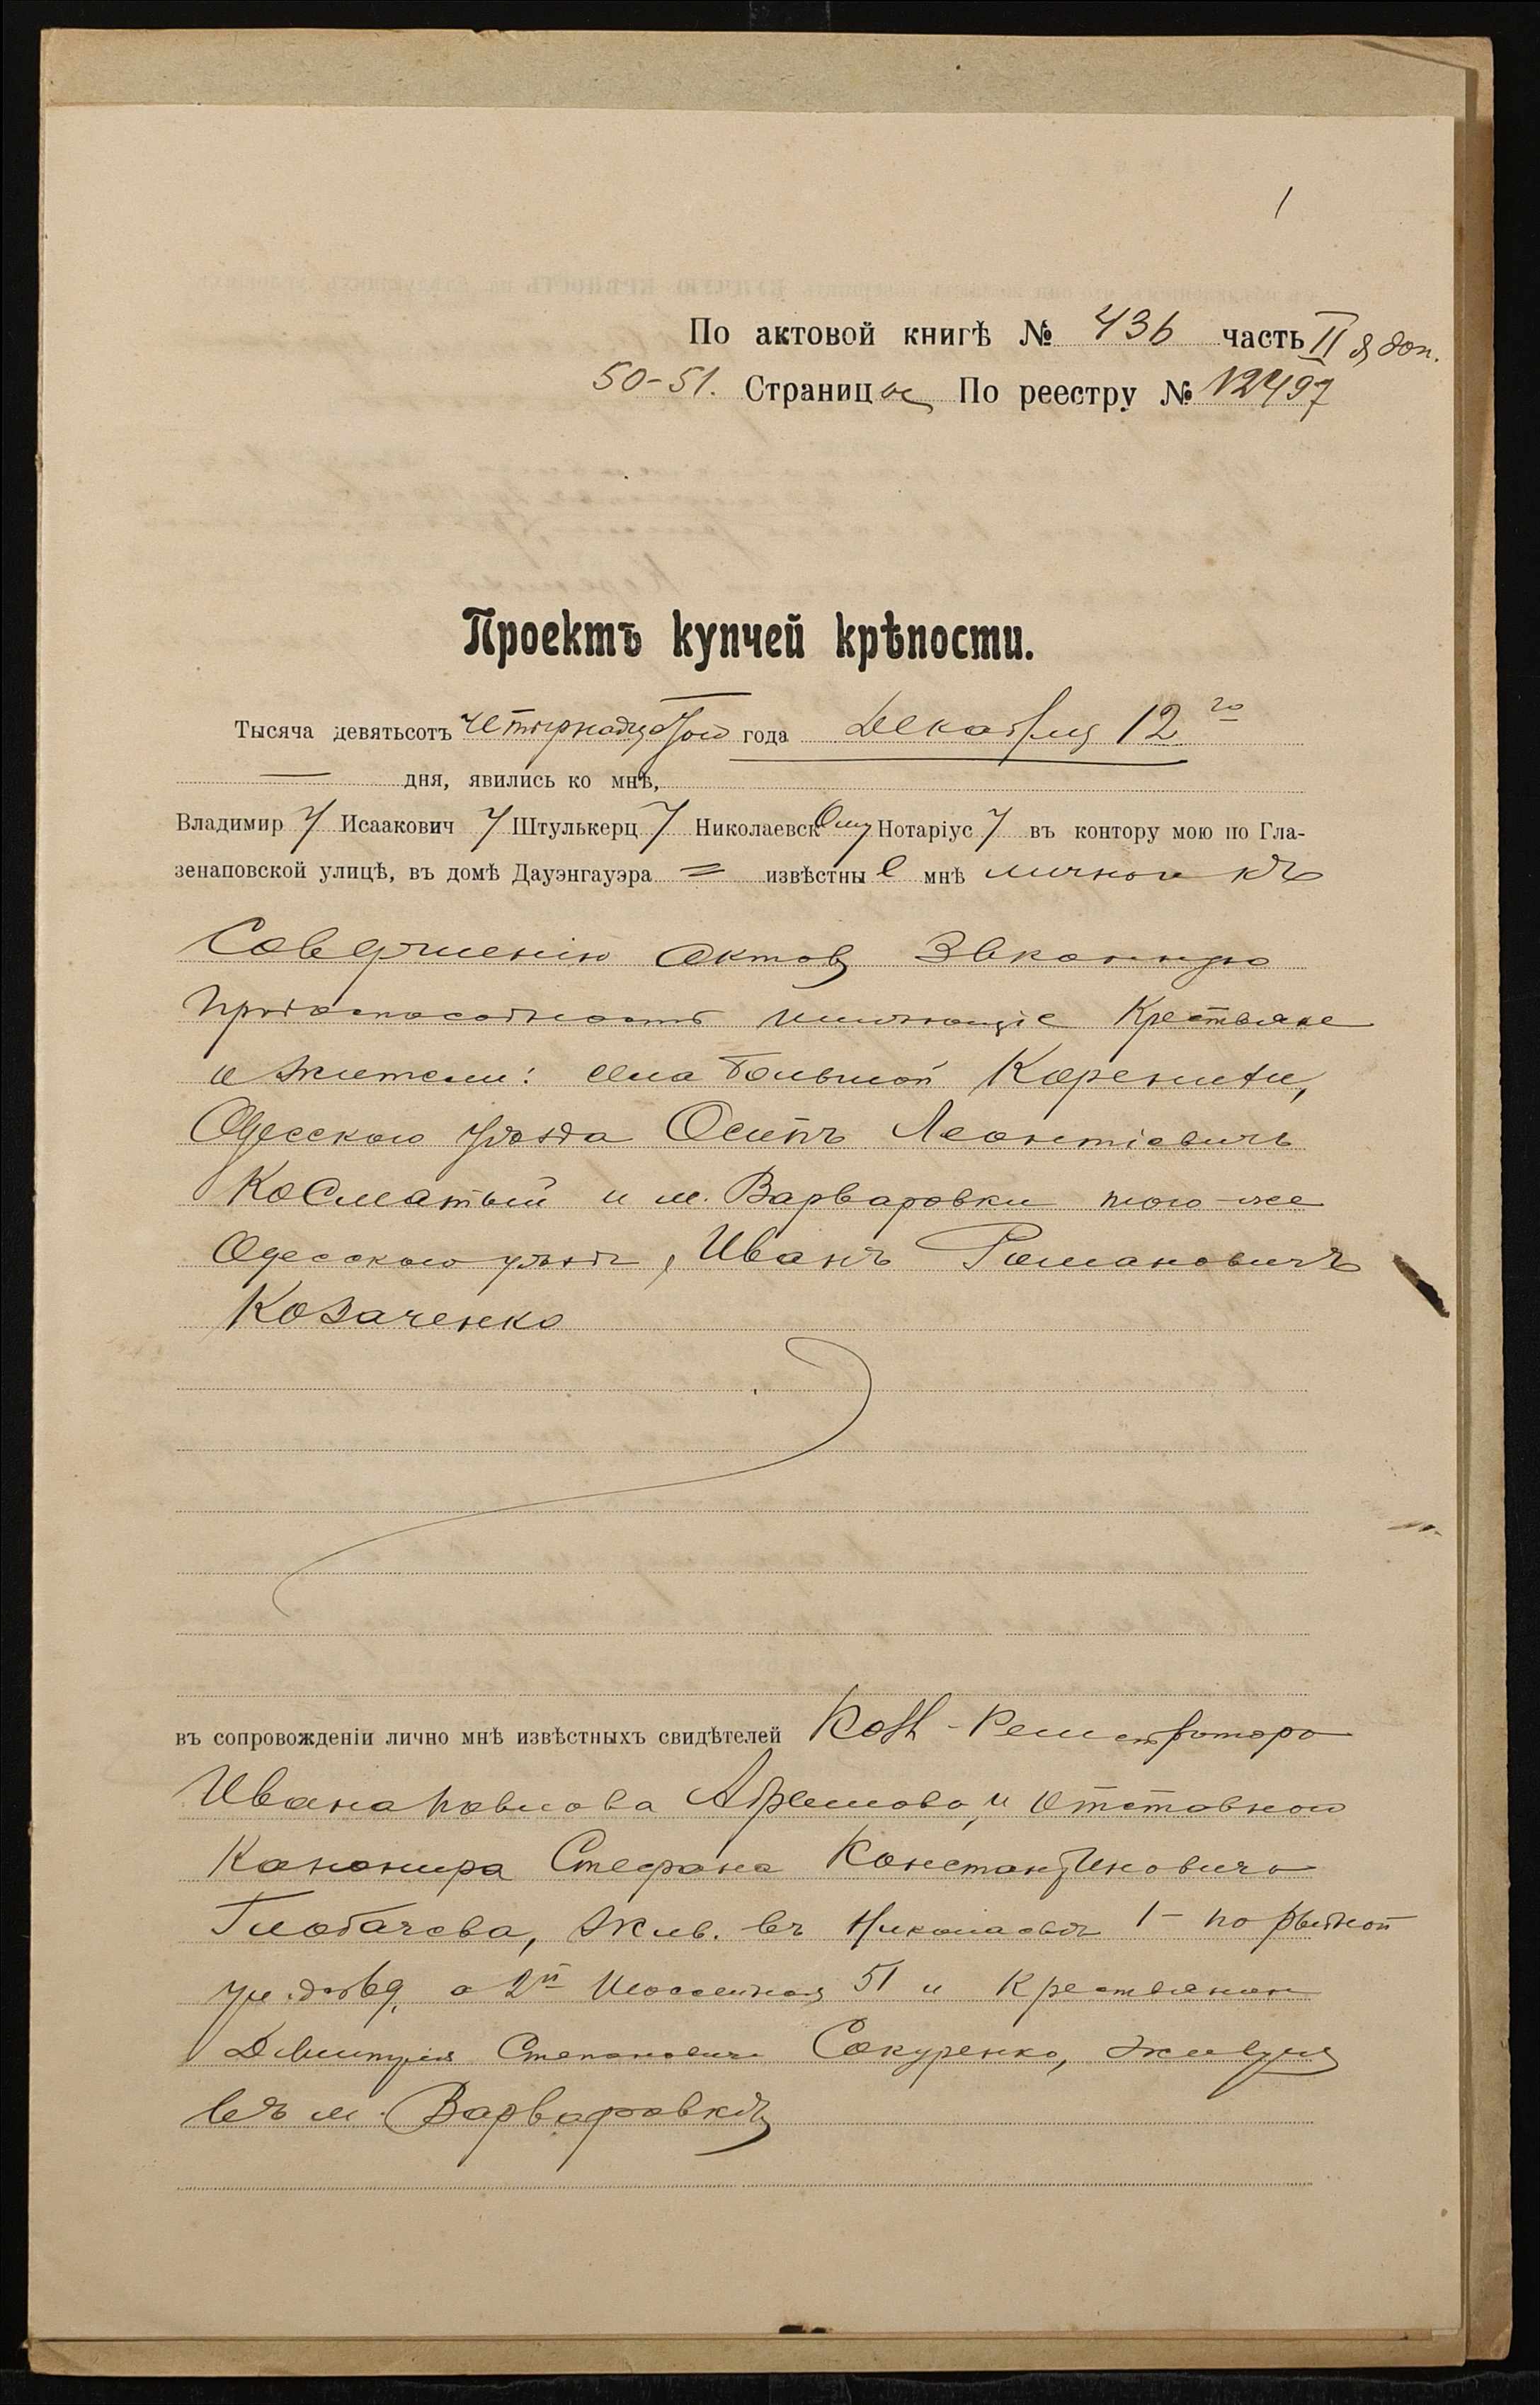 1
По актовой книгѣ № 436 часть II я доп.
50-51. Страница По реестру № 12497
Проектъ купчей крѣпости.
Тысяча девятьсотъ четырнадцатого года Декабря 12 го
— дня, явились ко мнѣ,
Владимир у Исаакович у Штулькерц у Николаевск ому Нотаріус у въ контору мою по Гла-
зенаповской улицѣ, въ домѣ Дауэнгауэра = извѣстны е мнѣ лично и къ
совершенію актовъ законную
правоспособность имѣющіе крестьяне
и жители: села Большой Коренихи,
Одесского уѣзда Осипъ Леонтіевичъ
Косматый и м. Варваровки того-же
Одесского уѣзда, Иванъ Романовичъ
Козаченко
въ сопровожденіи лично мнѣ извѣстныхъ свидѣтелей Колл-Регистратора
Ивана Павлова и отставного
Канонира Стефана Константиновича
Глобачева, жив. въ Николаевѣ 1- по Рыбной
ул. 69, а 2й 51 и крестьянин
Дмитрія Степанович Сокуренко, живущ
въ м. Варваровкѣ